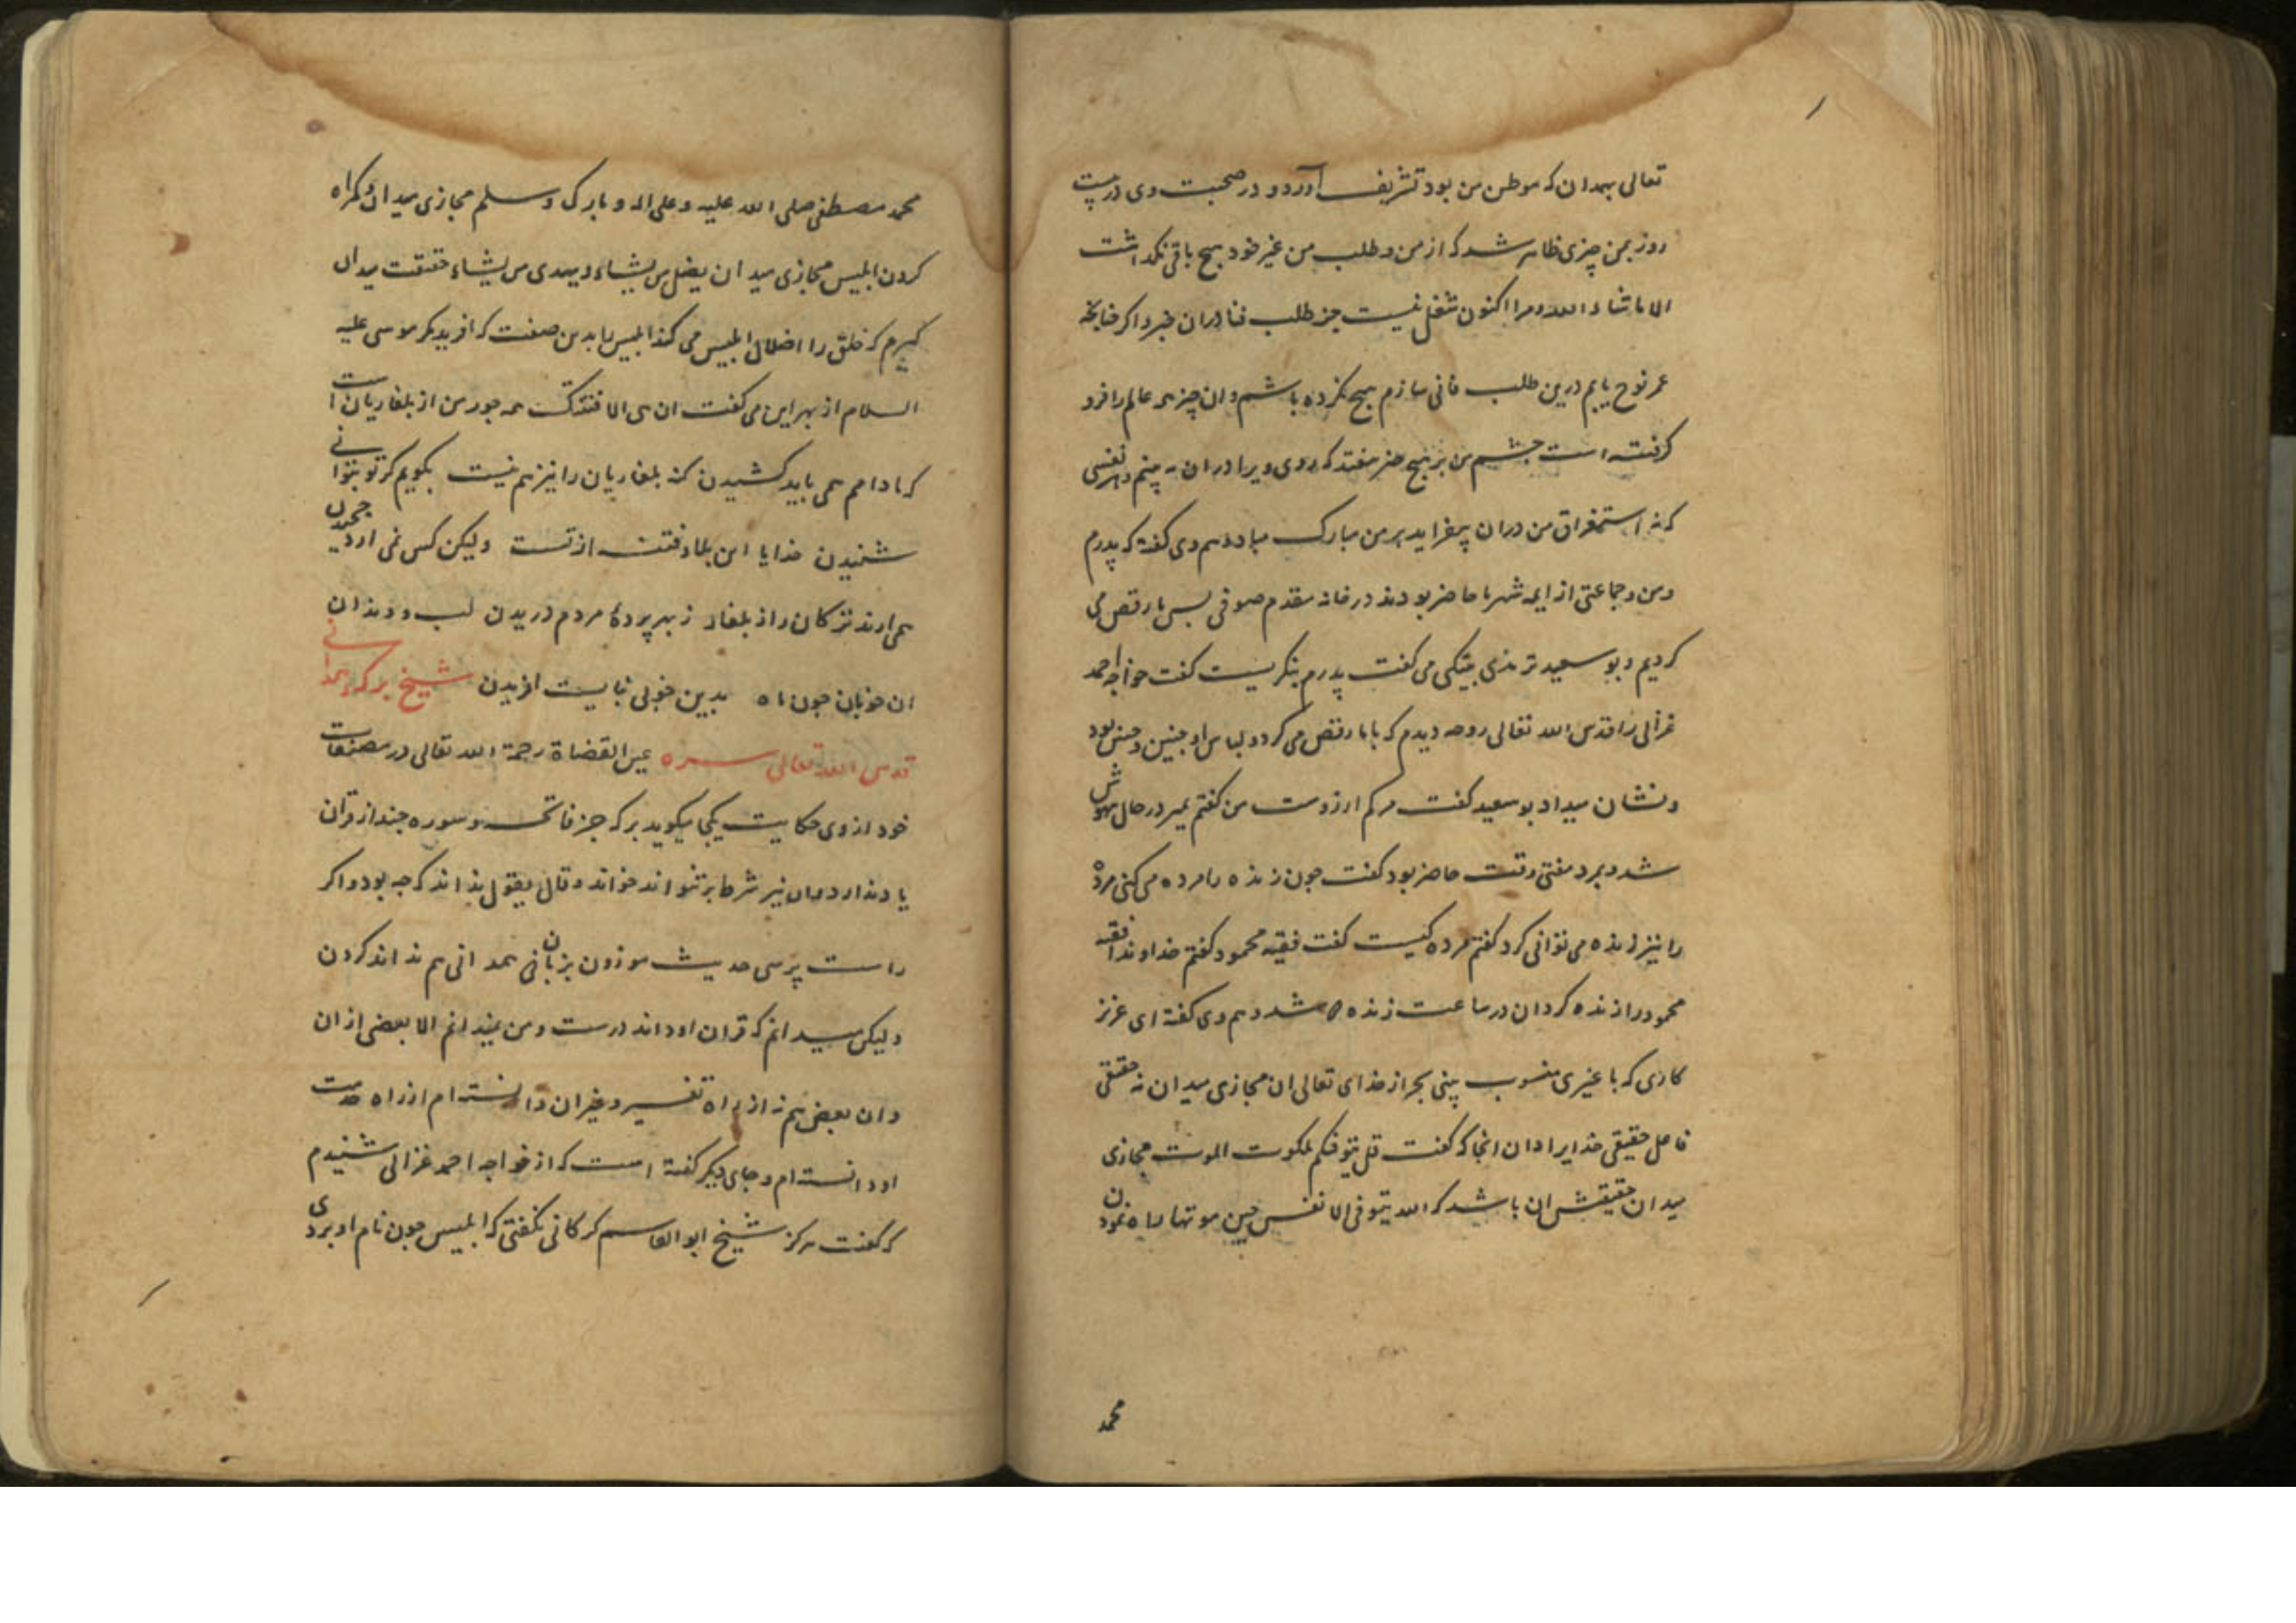 تعالی بهمدان که موطن من بود تشریف آورد و در صحبت وی در بیست
روز بمن چیزی ظاهر شد که از من و طلب من غیر خود هیچ باقی نکذاشت
الا ما شاء الله و مرا اکنون شغلی نیست جز طلب فنا در ان چیز و اکر چنانچه
عمر نوح یابم درین طلب فانی سازم هیچ نکرده باشم و ان چیز همه عالم را فرو
کرفته است چشم من بر هیچ چیز نیفتد که روی ویرا در ان نه بینم و هر نفسی
که نه استغراق من دران بیفزاید بر من مبارک مباد و هم وی کفته که پدرم
و من و جماعتی از ایمه شهر ما حاضر بودند در خانه مقدم صوفی پس ما رقص می
کردیم و بو سعید ترمذی بیتکی می کفت پدرم بنکریست کفت خواجه احمد
غزالی را قدس الله تعالی روحه دیدم که با ما رقص می کرد و لباس او چنین و چنین بود
و نشان میداد بو سعید کفت مرکم ارزوست من کفتم بمیر در حال بیهوش
شد و بمرد مفتی وقت حاضر بود کفت چون زنده را مرده می کنی مرده
را نیز زنده می توانی کرد کفتم مرده کیست کفت فقیه محمود کفتم خداوندا فقیه
محمود را زنده کردان در ساعت زنده شد و هم وی کفته ای عزیز
کاری که با غیری منسوب بینی بجز از خدای تعالی ان مجازی میدان نه حقیقی
فاعل حقیقی خدایرا دان انجا که کفت قل یتوفیکم ملکوت الموت مجازی
میدان حقیقتش ان باشد که الله یتوفی الانفس حین موتها راه نمودن
محمد
محمد مصطفی صلی الله علیه و علی اله و بارک و سلم مجازی میدان و کمراه
کردن ابلیس مجازی میدان یضل من یشاء و یهدی من یشاء حقیقت میدان
کیرم که خلق را اضلال ابلیس می کند ابلیس را بدین صفت که افرید مکر موسی علیه
السلام از بهر این می کفت ان هی الا فتنتک همه جور من از بلغاریان است
که مادامم همی باید کشیدن کنه بلغاریان را نیز هم نیست بکویم کر تو بتوانی
شنیدن خدایا این بلا و فتنه از تست ولیکن کس نمی ارد چخیدن
همی ارند ترکان را از بلغار ز بهر پردهٔ مردم دریدن لب و دندان
ان خوبان چون ماه بدین خوبی نبایست افریدن شیخ برکه همدانی
قدس الله تعالی سره عین القضاة رحمة الله تعالی در مصنفات
خود از وی حکایت یکجا میکوید برکه جز فاتحه و سوره چند از قران
یاد ندارد و ان نیز شرط بر نتواند خواند و قال یقول نداند که چه بود و اکر
راست پرسی حدیث موزون بزبان همدانی هم نداند کردن
ولیکن میدانم که قران او داند درست و من نمیدانم الا بعضی از ان
و ان بعض هم نه از راه تفسیر و غیر ان دانسته ام از راه خدمت
او دانسته ام و جای دیکر کفته است که از خواجه احمد غزالی شنیدم
که کفت هرکز شیخ ابو القاسم کرکانی نکفتی که ابلیس چون نام او بردی